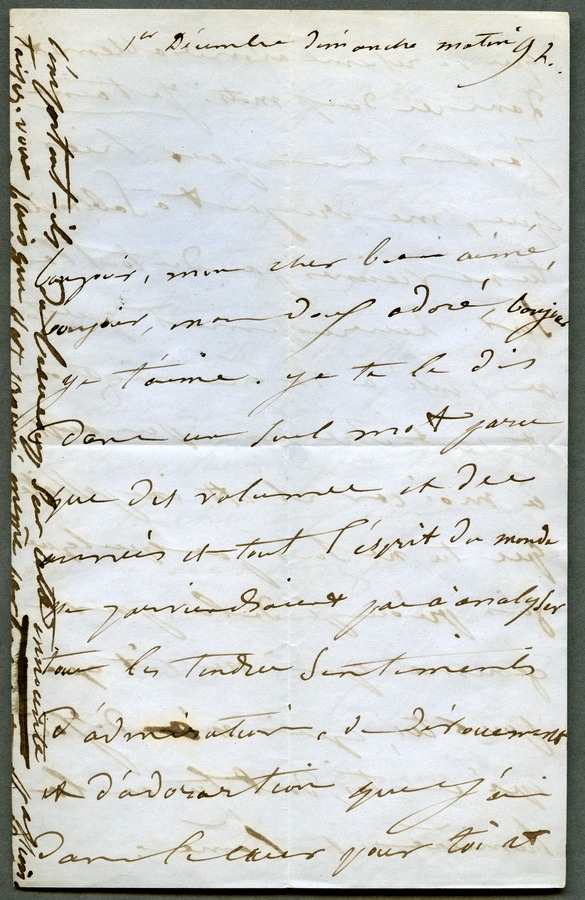 1er Décembre dimanche matin 9 h.
bonjour, mon cher bien aimé,
bonjour, mon doux adoré, bonjour
je t'aime. je te le dis
dans un seul mot parce
que des volumes et des
années et tout l'esprit du monde
ne parviendraient pas à analyser
tous les tendres sentiments
d'admiration, de dévouement
et d'adoration que j'ai
dans le cœur pour toi et
Taisez-vous puisque